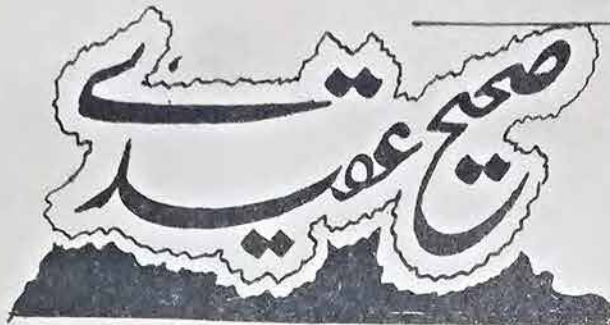 صحیح عقیدے